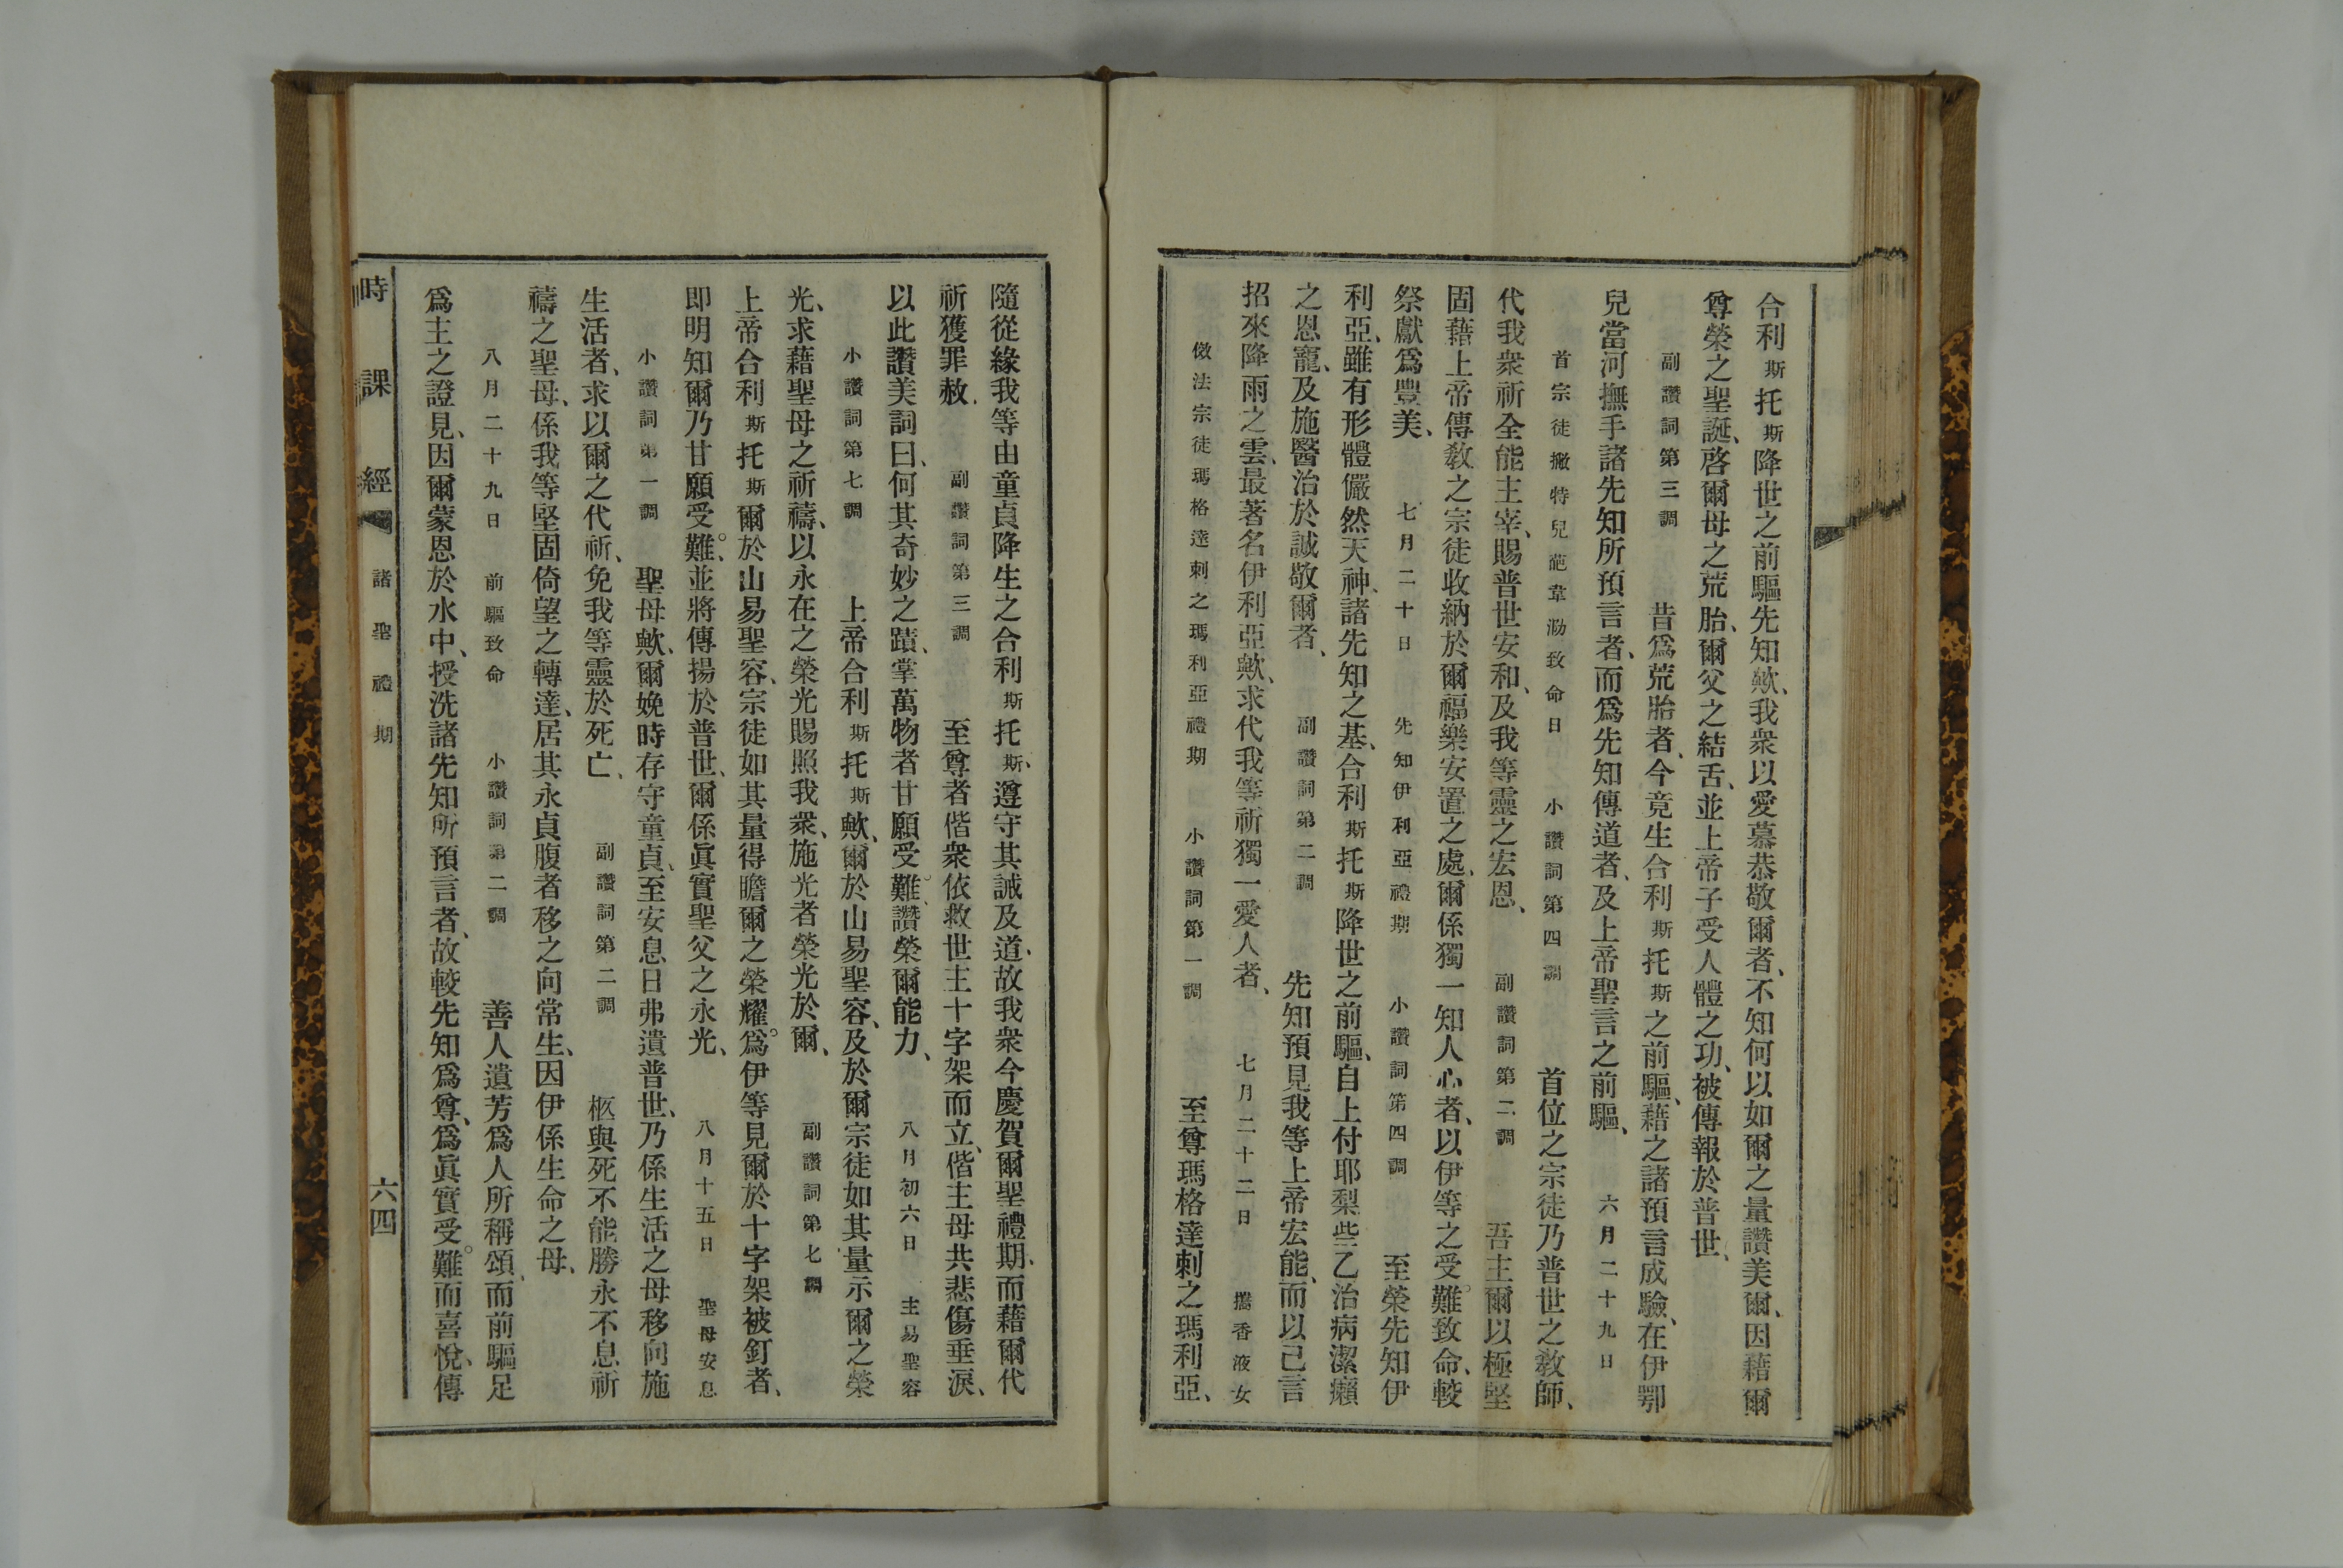 合利斯托斯降世之前驅先知歟、我衆以愛慕恭敬爾者、不知何以如爾之量讚美爾、因藉爾
尊榮之聖誕、啓爾母之荒胎、爾父之結舌、並上帝子受人體之功、被傳報於普世、
副讚詞第三調 昔爲荒胎者、今竟生合利斯托斯之前驅、藉之諸預言成驗、在伊鄂
兒當河撫手諸先知所預言者、而爲先知傳道者、及上帝聖言之前驅、 六月二十九日
首宗徒撇特兒葩韋泐致命日 小讚詞第四調 首位之宗徒乃普世之敎師、
代我衆祈全能主宰、賜普世安和、及我等靈之宏恩、 副讚詞第二調 吾主爾以極堅
固藉上帝傳敎之宗徒收納於爾福樂安置之處、爾係獨一知人心者、以伊等之受難致命、較
祭獻爲豐美、 七月二十日 先知伊利亞禮期 小讚詞第四調 至榮先知伊
利亞、雖有形體儼然天神、諸先知之基、合利斯托斯降世之前驅、自上付耶梨些乙治病潔癩
之恩寵、及施醫治於誠敬爾者、 副讚詞第二調 先知預見我等上帝宏能、而以己言
招來降雨之雲、最著名伊利亞歟、求代我等祈獨一愛人者、 七月二十二日 攜香液女
倣法宗徒瑪格達刺之瑪利亞禮期 小讚詞第一調 至尊瑪格達刺之瑪利亞、
隨從緣我等由童貞降生之合利斯托斯、遵守其誡及道、故我衆今慶賀爾聖禮期、而藉爾代
祈獲罪赦、 副讚詞第三調 至尊者偕衆依救世主十字架而立、偕主母共悲傷垂淚、
以此讚美詞曰、何其奇妙之蹟、掌萬物者甘願受難、讚榮爾能力、 八月初六日 主易聖容
小讚詞第七調 上帝合利斯托斯歟、爾於山易聖容、及於爾宗徒如其量示爾之榮
光、求藉聖母之祈禱、以永在之榮光賜照我衆、施光者榮光於爾、 副讚詞第七調
上帝合利斯托斯爾於山易聖容、宗徒如其量得瞻爾之榮耀、爲伊等見爾於十字架被釘者、
即明知爾乃甘願受難、並將傳揚於普世、爾係眞實聖父之永光、 八月十五日 聖母安息
小讚詞第一調 聖母歟、爾娩時存守童貞、至安息日弗遺普世、乃係生活之母移向施
生活者、求以爾之代祈、免我等靈於死亡、 副讚詞第二調 柩與死不能勝永不息祈
禱之聖母、係我等堅固倚望之轉達、居其永貞腹者移之向常生、因伊係生命之母、
八月二十九日 前驅致命 小讚詞第二調 善人遺芳爲人所稱頌、而前驅足
爲主之證見、因爾蒙恩於水中、授洗諸先知所預言者、故較先知爲尊、爲眞實受難而喜悅、傳
時課經 諸聖禮期 六四